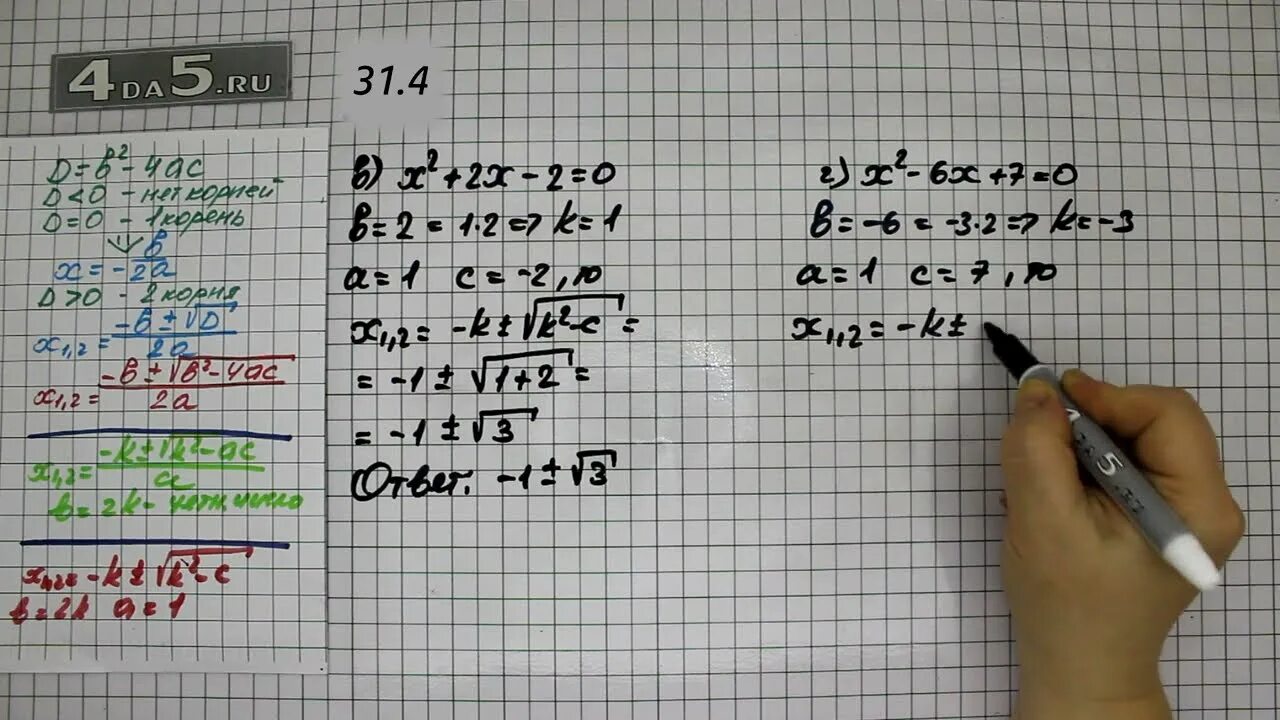 4DA5.RU
31.4
D = b² - 4ac
D < 0 - нет корней
D = 0 - 1 корень
x = - b/2a
D > 0 - 2 корня
x₁,₂ = (-b ± √D)/2a
x₁,₂ = (-b ± √(b² - 4ac))/2a
x₁,₂ = (-k ± √(k² - ac))/a
b = 2k - четн. число
x₁,₂ = -k ± √(k² - c)
b = 2k a = 1
в) x² + 2x - 2 = 0
b = 2 = 1·2 => k = 1
a = 1 c = -2, то
x₁,₂ = -k ± √(k² - c) =
= -1 ± √(1 + 2) =
= -1 ± √3
Ответ: -1 ± √3
г) x² - 6x + 7 = 0
b = -6 = -3·2 => k = -3
a = 1 c = 7, то
x₁,₂ = -k ±
5